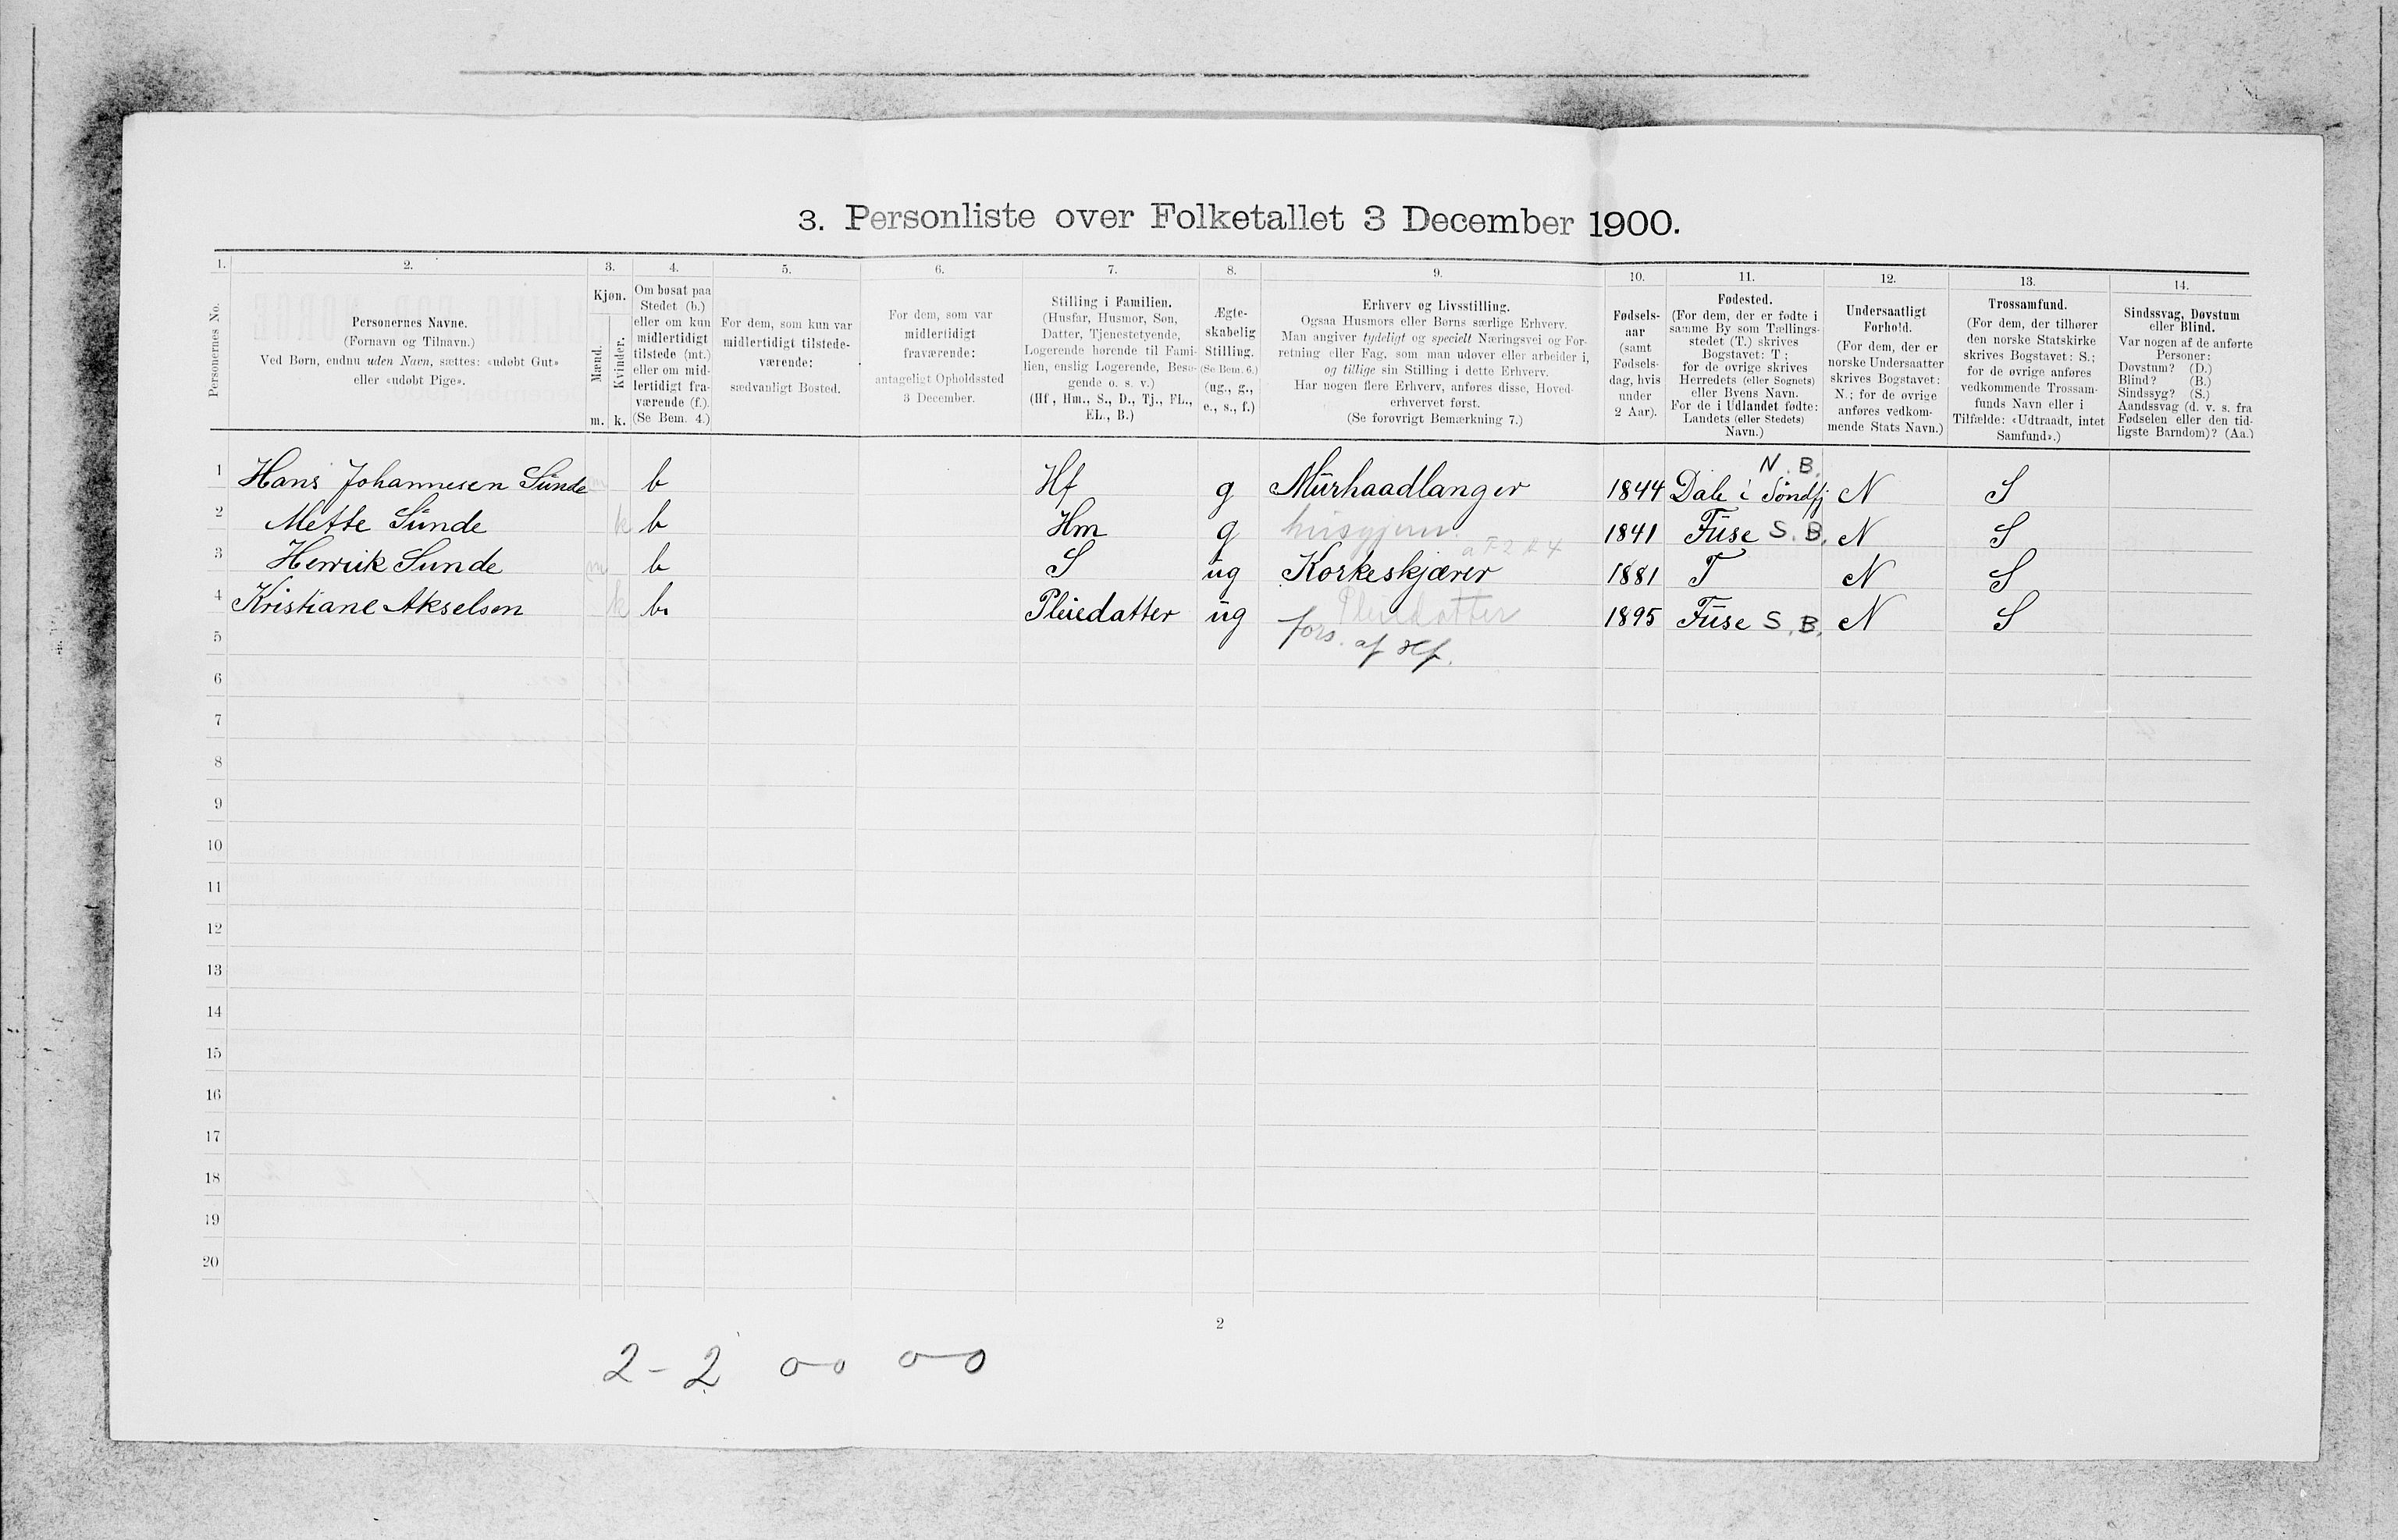 3. Personliste over Folketallet 3 December 1900.
1. 2. 3. 4. 5. 6. 7. 8. 9. 10. 11. 12. 13. 14.
Personernes No.
Personernes Navne.
(Fornavn og Tilnavn.)
Ved Børn, endnu uden Navn, sættes: «udøbt Gut»
eller «udøbt Pige».
Kjøn.
Mænd.
Kvinder.
m. k.
Om bosat paa
Stedet (b.)
eller om kun
midlertidigt
tilstede (mt.)
eller om mid-
lertidigt fra-
værende (f.).
(Se Bem. 4.)
For dem, som kun var
midlertidigt tilstede-
værende:
sædvanligt Bosted.
For dem, som var
midlertidigt
fraværende:
antageligt Opholdssted
3 December.
Stilling i Familien.
(Husfar, Husmor, Søn,
Datter, Tjenestetyende,
Logerende hørende til Fami-
lien, enslig Logerende, Besø-
gende o. s. v.)
(Hf., Hm., S., D., Tj., FL.,
EL., B.)
Ægte-
skabelig
Stilling.
(Se Bem. 6.)
(ug., g.,
e., s., f.)
Erhverv og Livsstilling.
Ogsaa Husmors eller Børns særlige Erhverv.
Man angiver tydeligt og specielt Næringsvei og For-
retning eller Fag, som man udøver eller arbeider i,
og tillige sin Stilling i dette Erhverv.
Har nogen flere Erhverv, anføres disse, Hoved-
erhvervet først.
(Se forøvrigt Bemærkning 7.)
Fødsels-
aar
(samt
Fødsels-
dag, hvis
under
2 Aar).
Fødested.
(For dem, der er fødte i
samme By som Tællings-
stedet (T.) skrives
Bogstavet: T;
for de øvrige skrives
Herredets (eller Sognets)
eller Byens Navn.
For de i Udlandet fødte:
Landets (eller Stedets)
Navn.)
Undersaatligt
Forhold.
(For dem, der er
norske Undersaatter
skrives Bogstavet:
N.; for de øvrige
anføres vedkom-
mende Stats Navn.)
Trossamfund.
(For dem, der tilhører
den norske Statskirke
skrives Bogstavet: S.;
for de øvrige anføres
vedkommende Trossam-
funds Navn eller i
Tilfælde: «Udtraadt, intet
Samfund».)
Sindssvag, Døvstum
eller Blind.
Var nogen af de anførte
Personer:
Døvstum? (D.)
Blind? (B.)
Sindssyg? (S.)
Aandssvag (d. v. s. fra
Fødselen eller den tid-
ligste Barndom)? (Aa.)
N. B.
1 Hans Johannesen Sunde m b Hf g Murhaadlanger 1844 Dale i Söndfj N S
2 Mette Sunde k b Hm g 1841 Fuse S. B. N S
3 Henrik Sunde m b S ug Korkeskjærer 1881 T N S
4 Kristiane Akselsen k b. Pleiedatter ug Pleiedatter 1895 Fuse S. B. N S
5 fors. af Hf.
6
7
8
9
10
11
12
13
14
15
16
17
18
19
20
2
2 - 2 0-0 0-0